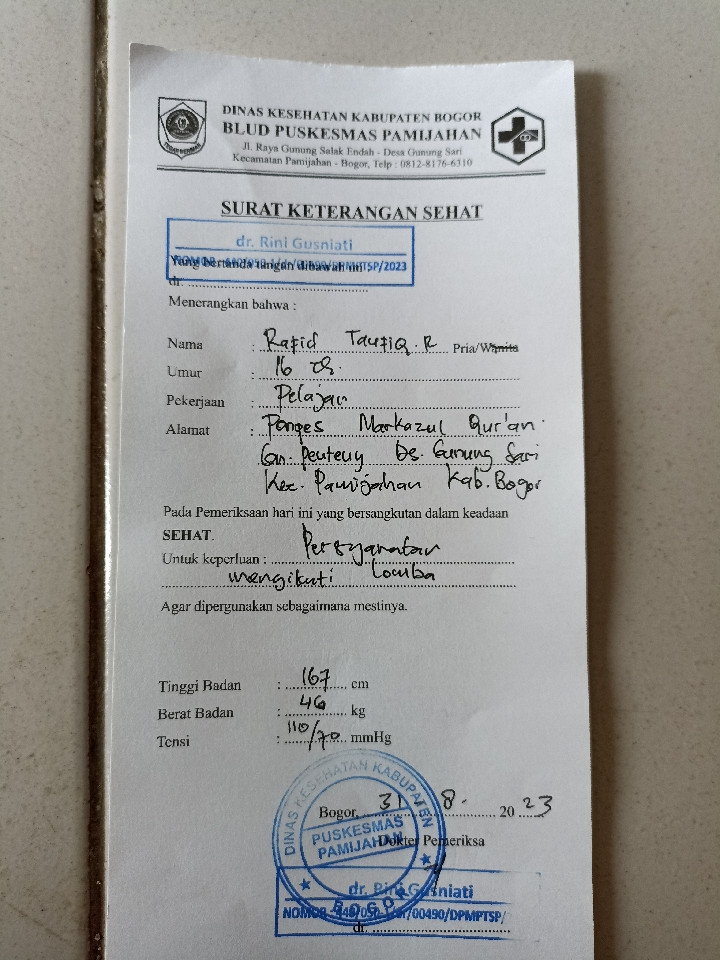 DINAS KESEHATAN KABUPATEN BOGOR
BLUD PUSKESMAS PAMIJAHAN
Jl. Raya Gunung Salak Endah - Desa Gunung Sari
Kecamatan Pamijahan - Bogor, Telp : 0812-8176-6310
SURAT KETERANGAN SEHAT
dr. Rini Gusniati
Yang bertanda tangan dibawah ini
NOMOR /DPMPTSP/2023
dr.
Menerangkan bahwa :
Nama : Rafid Taufiq. R Pria/Wanita
Umur : 16 th.
Pekerjaan : Pelajar
Alamat : Ponpes Markazul Qur'an
Gn. Peuteuy Ds. Gunung Sari
Kec. Pamijahan Kab. Bogor
Pada Pemeriksaan hari ini yang bersangkutan dalam keadaan
SEHAT.
Untuk keperluan : Persyaratan
mengikuti Lomba
Agar dipergunakan sebagaimana mestinya.
Tinggi Badan : 167 cm
Berat Badan : 46 kg
Tensi : 110/70 mmHg
DINAS KESEHATAN KABUPATEN
PUSKESMAS
PAMIJAHAN
BOGOR
Bogor, 31 8. 20 23
Dokter Pemeriksa
dr. Rini Gusniati
NOMOR /00490/DPMPTSP/
dr.